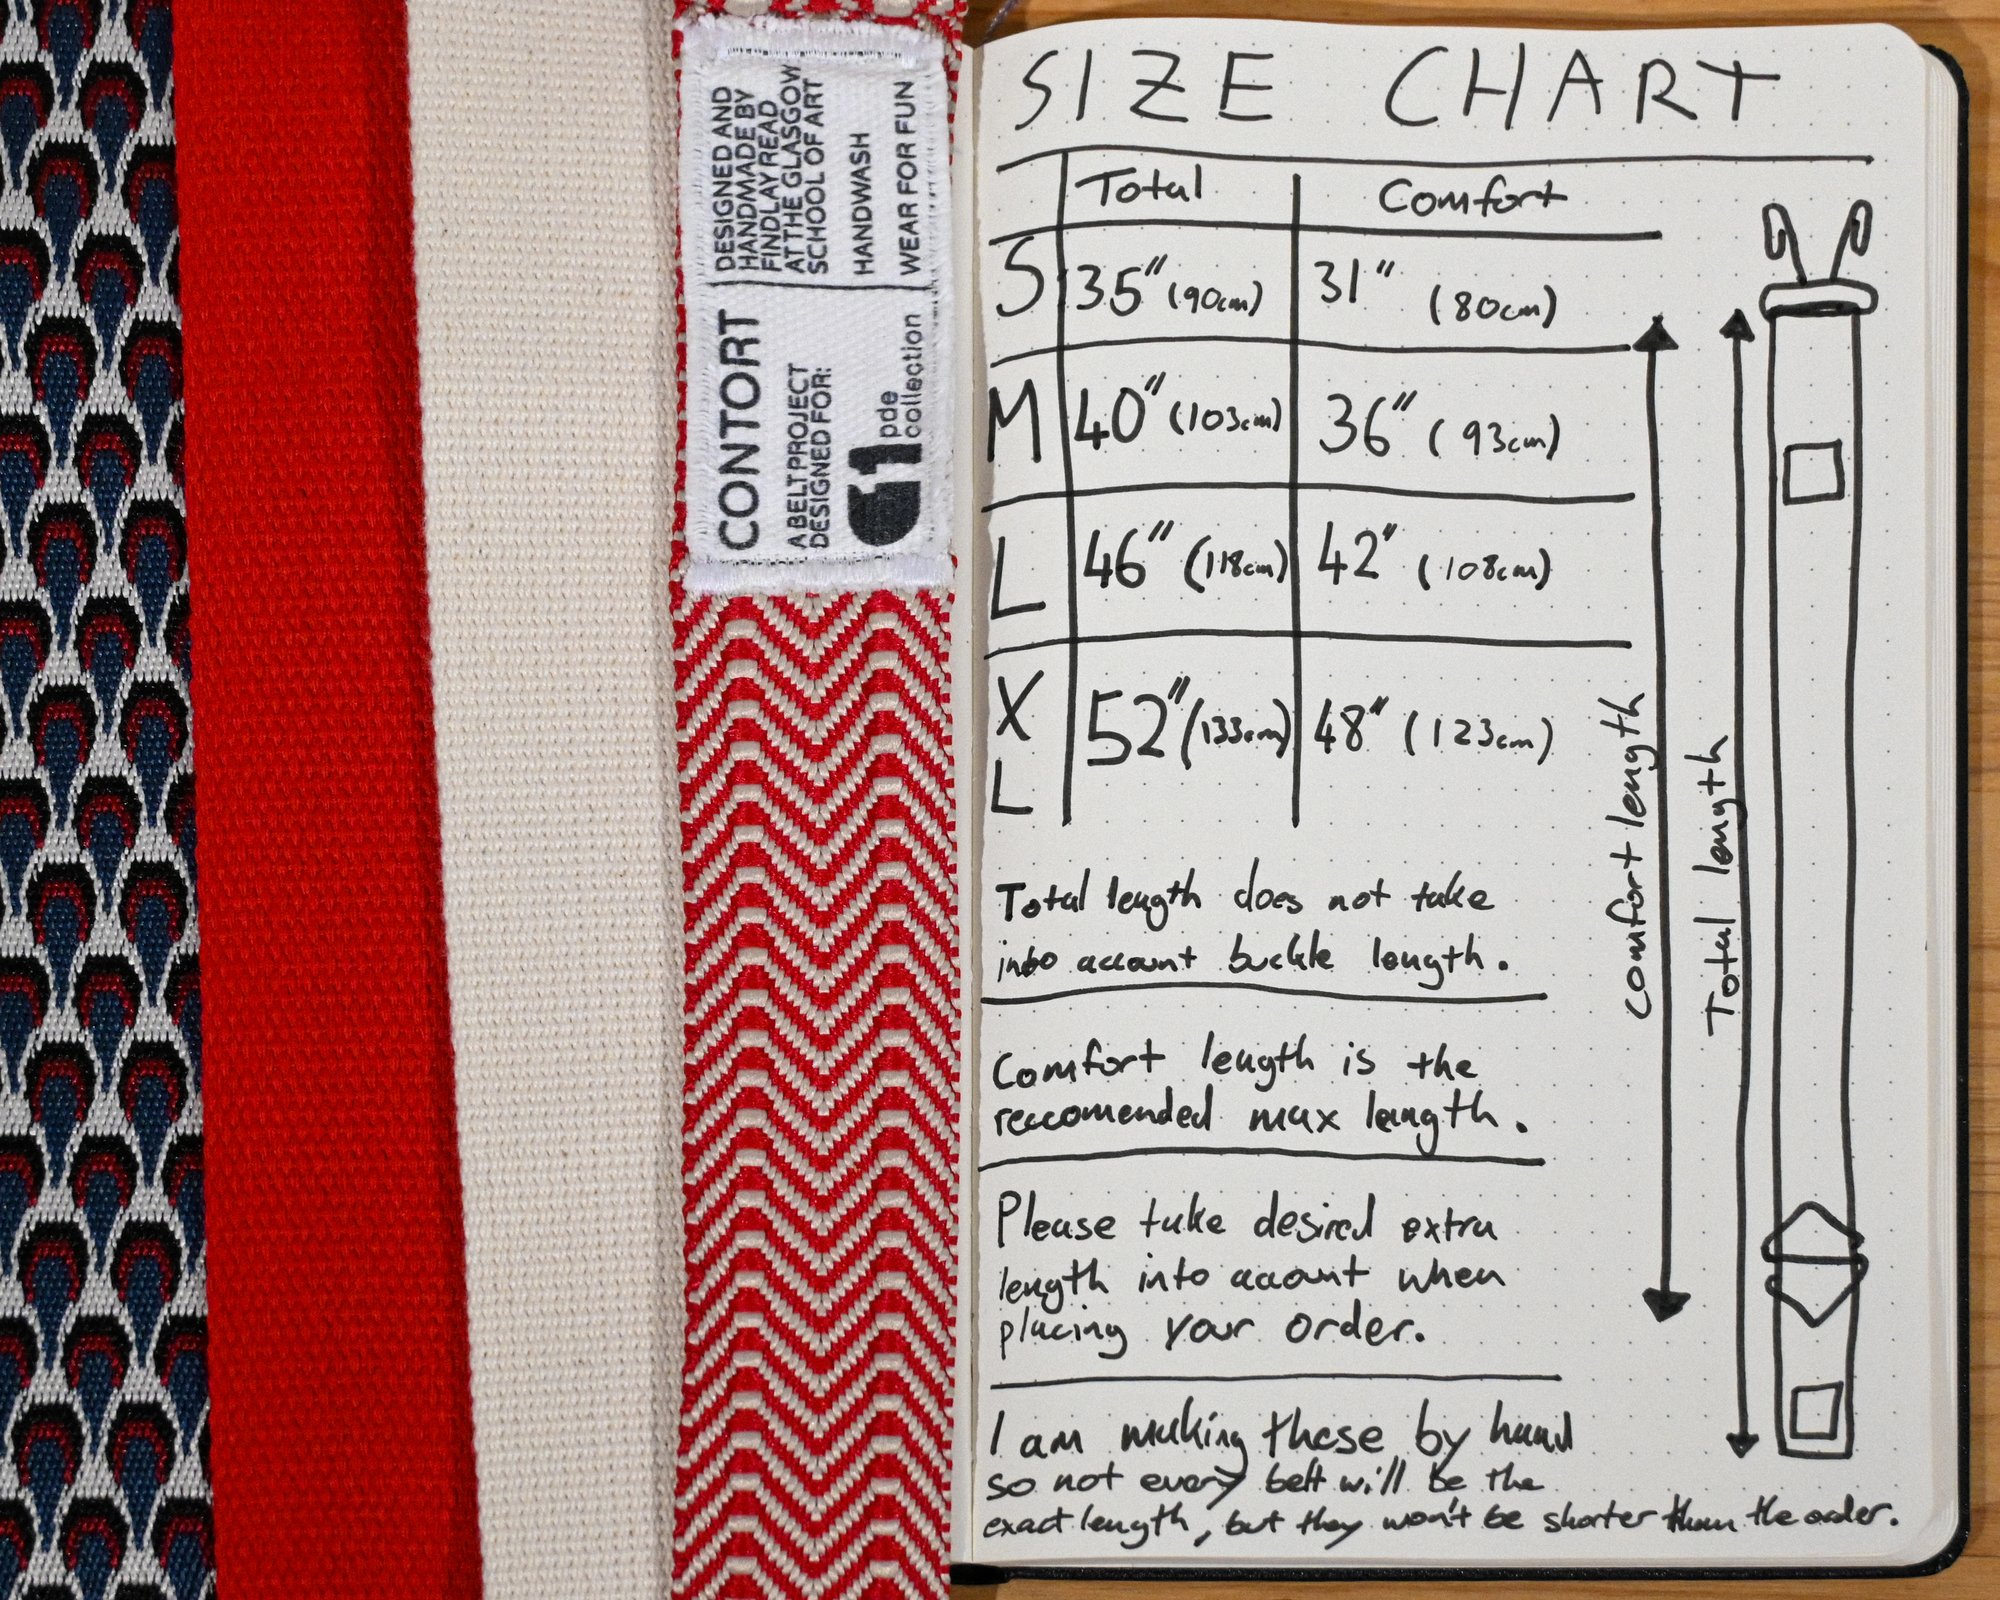 DESIGNED AND
HANDMADE BY
FINDLAY READ
AT THE GLASGOW
SCHOOL OF ART
HANDWASH
WEAR FOR FUN
CONTORT
A BELT PROJECT
DESIGNED FOR:
1 pde
collection
SIZE CHART
Total Comfort
S 35" (90cm) 31" (80cm)
M 40" (103cm) 36" (93cm)
L 46" (118cm) 42" (108cm)
XL 52" (133cm) 48" (123cm)
comfort length
Total length
Total length does not take
into account buckle length.
Comfort length is the
reccomended max length.
Please take desired extra
length into account when
placing your order.
I am making these by hand
so not every belt will be the
exact length, but they won't be shorter than the order.